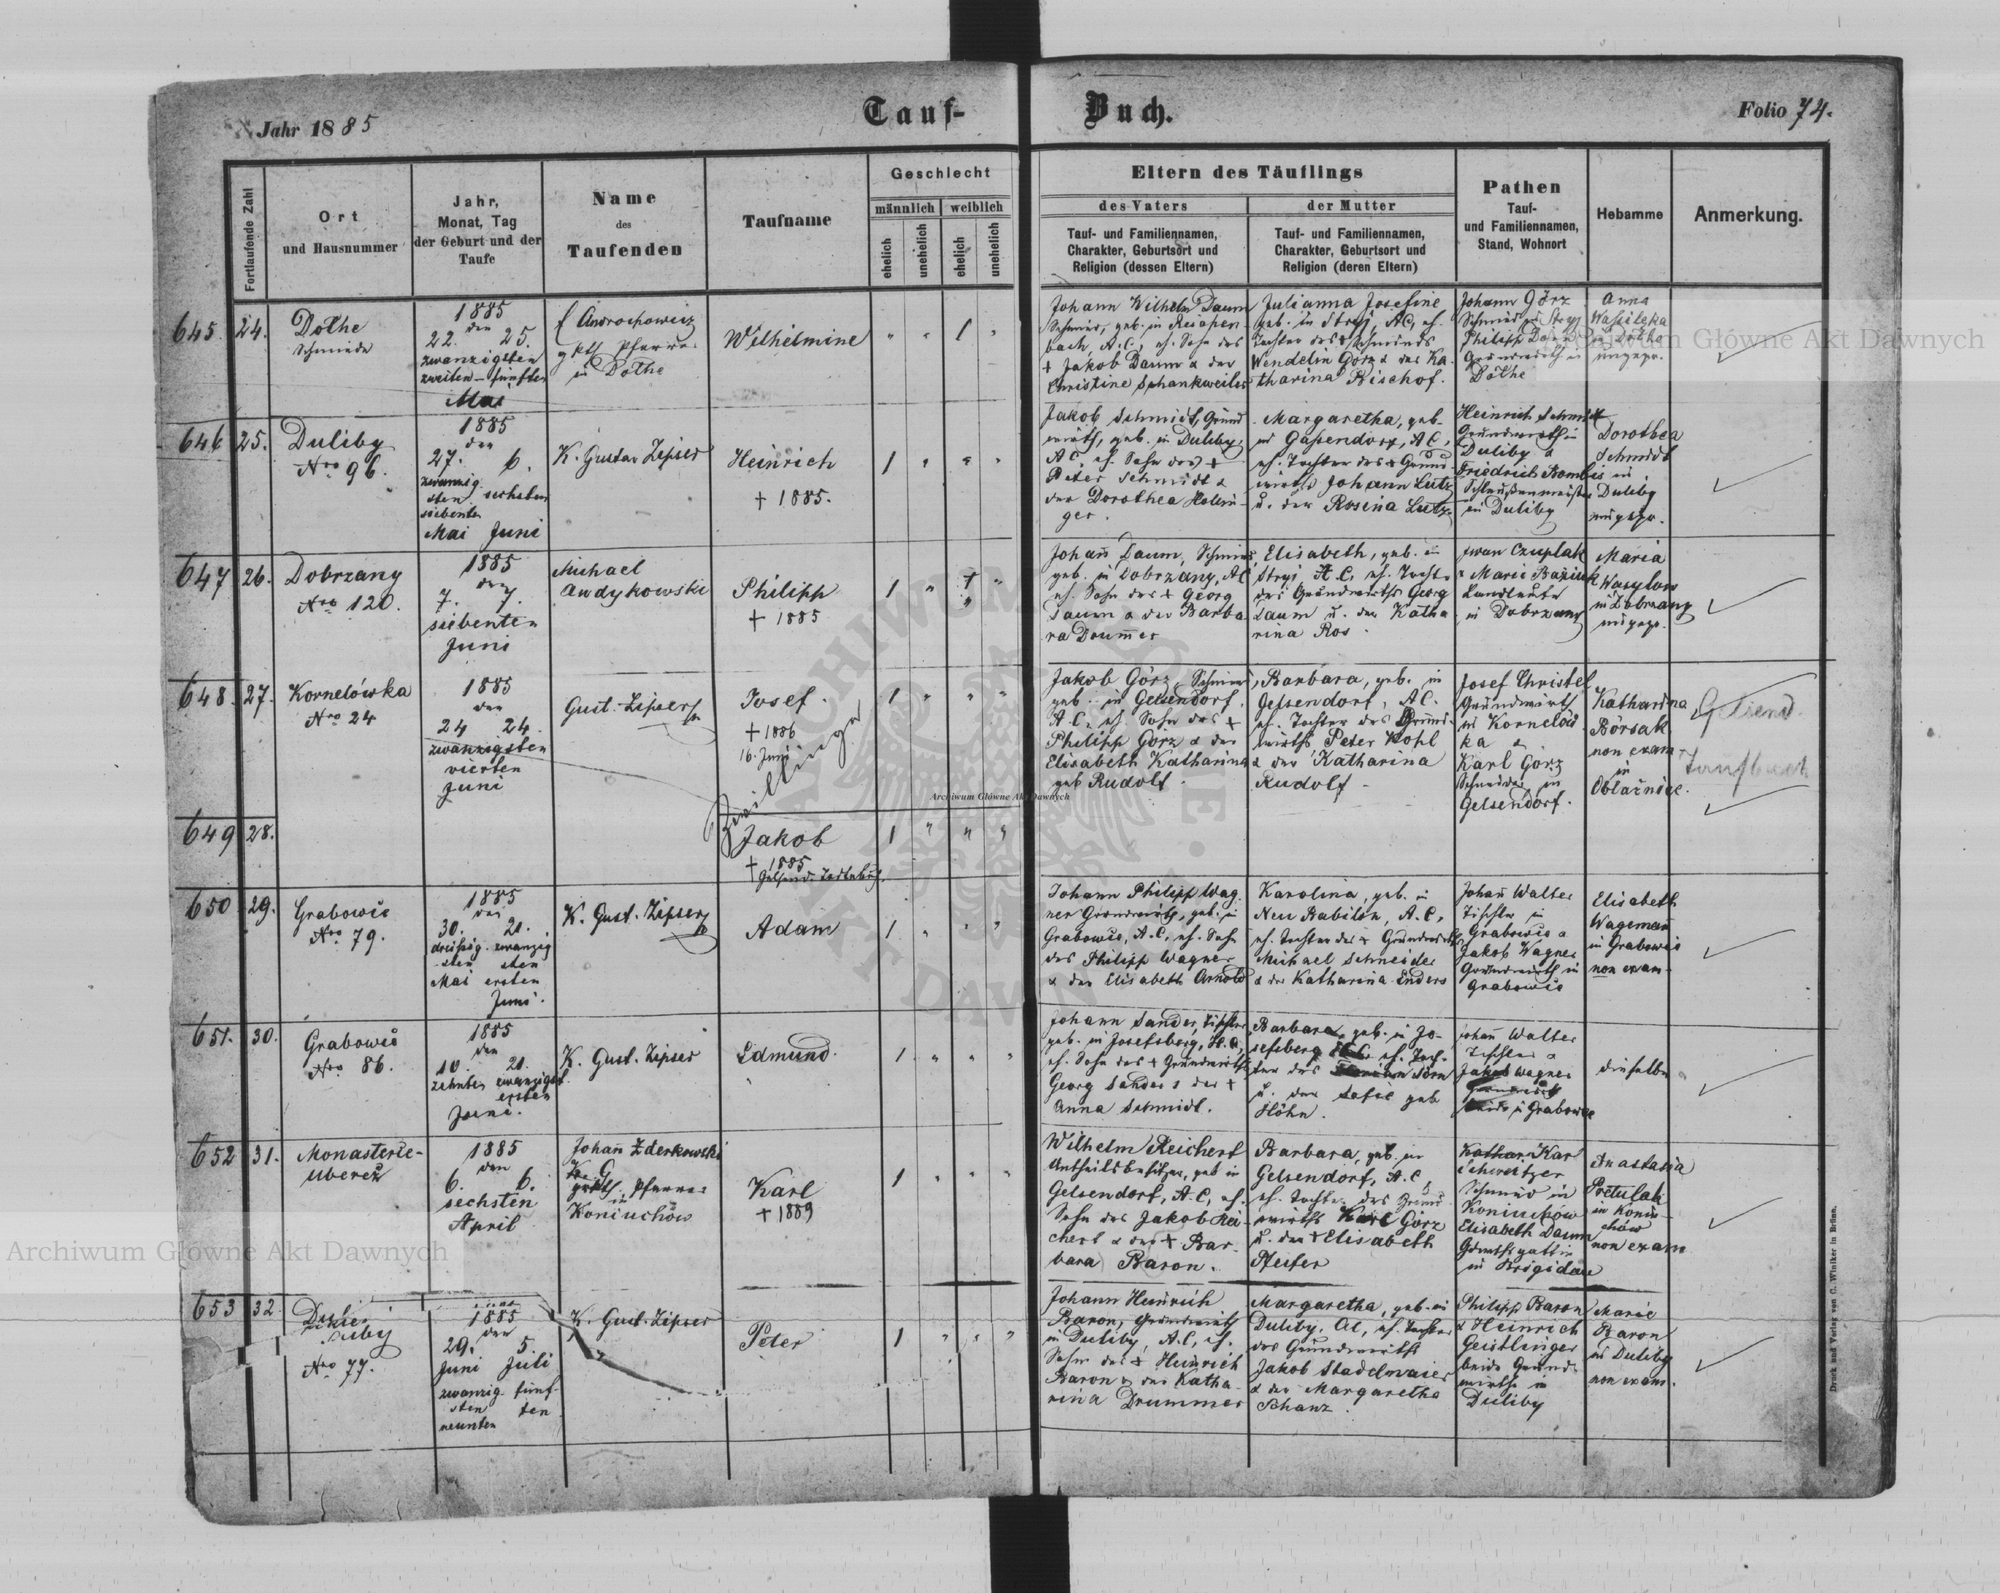 Jahr 1885
Tauf-Buch.
Folio 74.
Fortlaufende Zahl
Ort
und Hausnummer
Jahr,
Monat, Tag
der Geburt und der
Taufe
Name
des
Taufenden
Taufname
Geschlecht
männlich
weiblich
ehelich
unehelich
ehelich
unehelich
Eltern des Täuflings
des Vaters
Tauf- und Familiennamen,
Charakter, Geburtsort und
Religion (dessen Eltern)
der Mutter
Tauf- und Familiennamen,
Charakter, Geburtsort und
Religion (deren Eltern)
Pathen
Tauf-
und Familiennamen,
Stand, Wohnort
Hebamme
Anmerkung.
645. 24.
Dołhe
Schmiede
1885
den
22. 25.
zwanzigsten
zweiten - fünften
Mai
Pfarrer
in Dołhe
Wilhelmine
" " 1 "
Johann Wilhelm Daum
Schmied, geb. in
bach, A.C., eh. Sohn des
+ Jakob Daum & der
Christine Schankweiler
Julianna Josefine
geb. in Stryj, A.C, eh.
Tochter des + Schmieds
Wendelin Görz & der Ka-
tharina Bischof.
Johann Görz
Schmied in Stryj
Philipp Daum
Grundwirth in
Dołhe
Anna
Wassilęka
in Dołhe
ungepr.
646 25.
Duliby
Nro 96.
1885
den
27. 6.
zwanzig
sten sechsten
siebenten
Mai Juni
K. Gustav Zipser
Heinrich
+ 1885.
1 " " "
Jakob Schmidt, Grund
wirth, geb. in Duliby,
A.C, eh. Sohn des +
Peter Schmidt &
der Dorothea Holzin-
ger.
Margaretha, geb.
in Gassendorf, A.C.,
eh. Tochter des + Grund-
wirths Johann Lutz
u. der Rosina Lutz.
Heinrich Schmidt
Grundwirth in
Duliby &
Friedrich Bombis
in Duliby
Dorothea
Schmidt
in
Duliby
ungepr.
647 26.
Dobrzany
Nro 120.
1885
den
7. 7.
siebenten
Juni
Michael
Andykowski
Philipp
+ 1885
1 " "
Johann Daum, Schmied,
geb. in Dobrzany, A.C
eh. Sohn des + Georg
Daum & der Barba-
ra Drummer
Elisabeth, geb. in
Stryj A.C, eh. Tocht.
des Grundwirths Georg
Daum u. der Katha
rina Ros.
Iwan Czuplak
& Marie
Landleute
in Dobrzany
Maria
Wasylow
in Dobrzany
ungepr.
648. 27.
Kornelówka
Nro 24
1885
den
24 24.
zwanzigsten
vierten
Juni
Gust. Zipser
Josef.
+ 1886
16. Juni
Zwillinge
1 " " "
Jakob Görz, Schmied,
geb. in Gelsendorf.
A.C, eh. Sohn des +
Philipp Görz & der
Elisabeth Katharina
geb Rudolf.
Barbara, geb. in
Gelsendorf, A.C.
eh. Tochter des Grund-
wirths Peter Kohl
& der Katharina
Rudolf.
Josef Christel
Grundwirth
in Kornelów
ka &
Karl Görz
Schneider in
Gelsendorf.
Katharina
Börsak
non exam.
in
Oblaźnice.
Gelsend.
Taufbuch
649 28.
Jakob
+ 1885
1 " " "
650 29.
Grabowic
Nro. 79.
1885
den
30. 21.
dreißig- zwanzig
sten sten
Mai ersten
Juni.
K. Gust. Zipser
Adam
1 " " "
Johann Philipp Wag
ner Grundwirth, geb. in
Grabowic, A.C, eh. Sohn
des Philipp Wagner
& der Elisabeth Arnold
Karolina, geb. in
Neu Babilon, A.C,
eh. Tochter des + Grundwirths
Michael Schneider
& der Katharina Enders
Johann Walter
Tischler in
Grabowic &
Jakob Wagner
Grundwirth in
Grabowic
Elisabeth
Wagemann
in Grabowic
non exam.
651. 30.
Grabowic
Nro 86.
1885
den
10. 21.
zehnten zwanzigst.
ersten
Juni.
K. Gust. Zipser
Edmund.
1 " " "
Johann Sander, Tischler
geb. in Josefsberg, H.C,
eh. Sohn des + Grundwirths
Georg Sander & der +
Anna Schmidt.
Barbara, geb. in Jo-
sefsberg eh. Toch-
ter des
u. der Sofie geb
Höhn.
Johann Walter
Tischler &
Jakob Wagner
beide in Grabowic
dieselbe
652 31.
Monasterze-
Uberez
1885
den
6. 6.
sechsten
April
Johann Zderkowski
Pfarrer
in
Koniuchów
Karl
+ 1889
1 " " "
Wilhelm Reichert
Antheilsbesitzer, geb in
Gelsendorf, A.C, eh.
Sohn des Jakob Rei-
chert & der + Bar-
bara Baron.
Barbara, geb. in
Gelsendorf, A.C
eh. Tochter des Grund
wirths Karl Görz
u. der + Elisabeth
Pfeifer
Karl
Schweitzer
Schmied in
Koniuchów
Elisabeth Daum
in Brigidau
Anastasia
Pretulak
in Koniu-
chów
non exam
653 32.
Duliby
Nro 77.
1885
den
29. 5.
Juni Juli
zwanzig- fünf-
sten ten
neunten
K. Gust. Zipser
Peter
1 " " "
Johann Heinrich
Baron, Grundwirth
in Duliby, A.C, eh.
Sohn des + Heinrich
Baron & der Katha-
rina Drummer
Margaretha, geb. in
Duliby, A.C, eh. Tochter
des Grundwirths
Jakob Stadelmaier
& der Margaretha
Schanz.
Philipp Baron
& Heinrich
Geistlinger
beide Grund-
wirthe in
Duliby
Marie
Baron
in Duliby
non exam.
Druck und Verlag von C. Winiker in Brünn.
Archiwum Główne Akt Dawnych
Archiwum Główne Akt Dawnych
Archiwum Główne Akt Dawnych